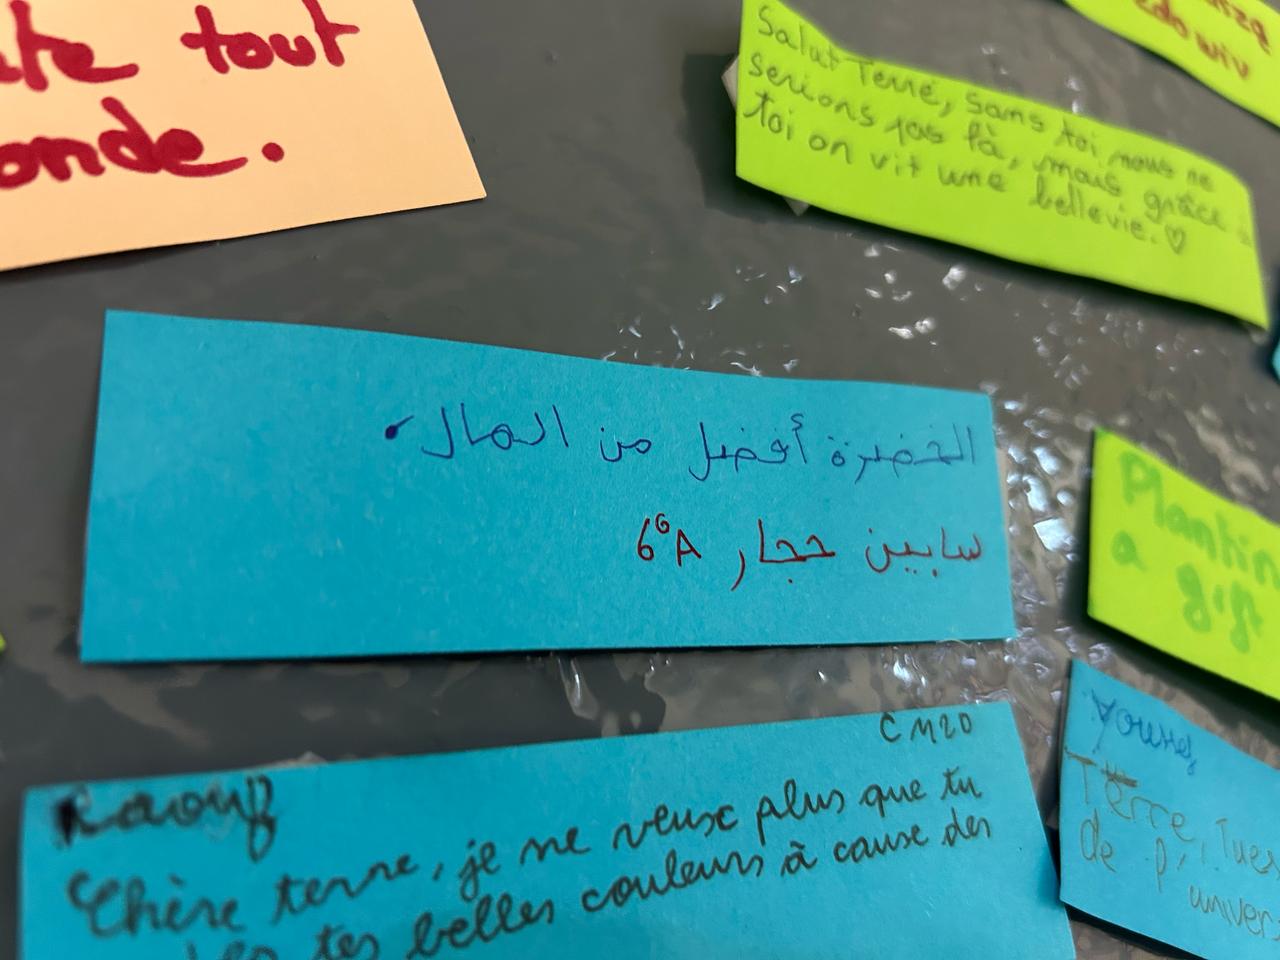 tout
onde.
Salut Terre, sans toi nous ne
serions pas là, mais grâce à
toi on vit une belle vie.♡
الخضرة أفضل من المال.
سابين حجار 6⁰A
Plantin
a gift
CM2D
Raouf
Chère terre, je ne veux plus que tu
tes belles couleurs à cause des
Youssef
Terre, Tues
de l'univers